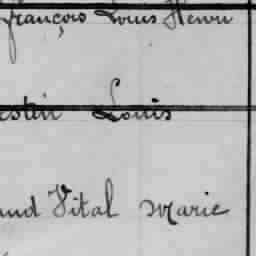 françois Louis Henri
estin Louis
and Vital Marie